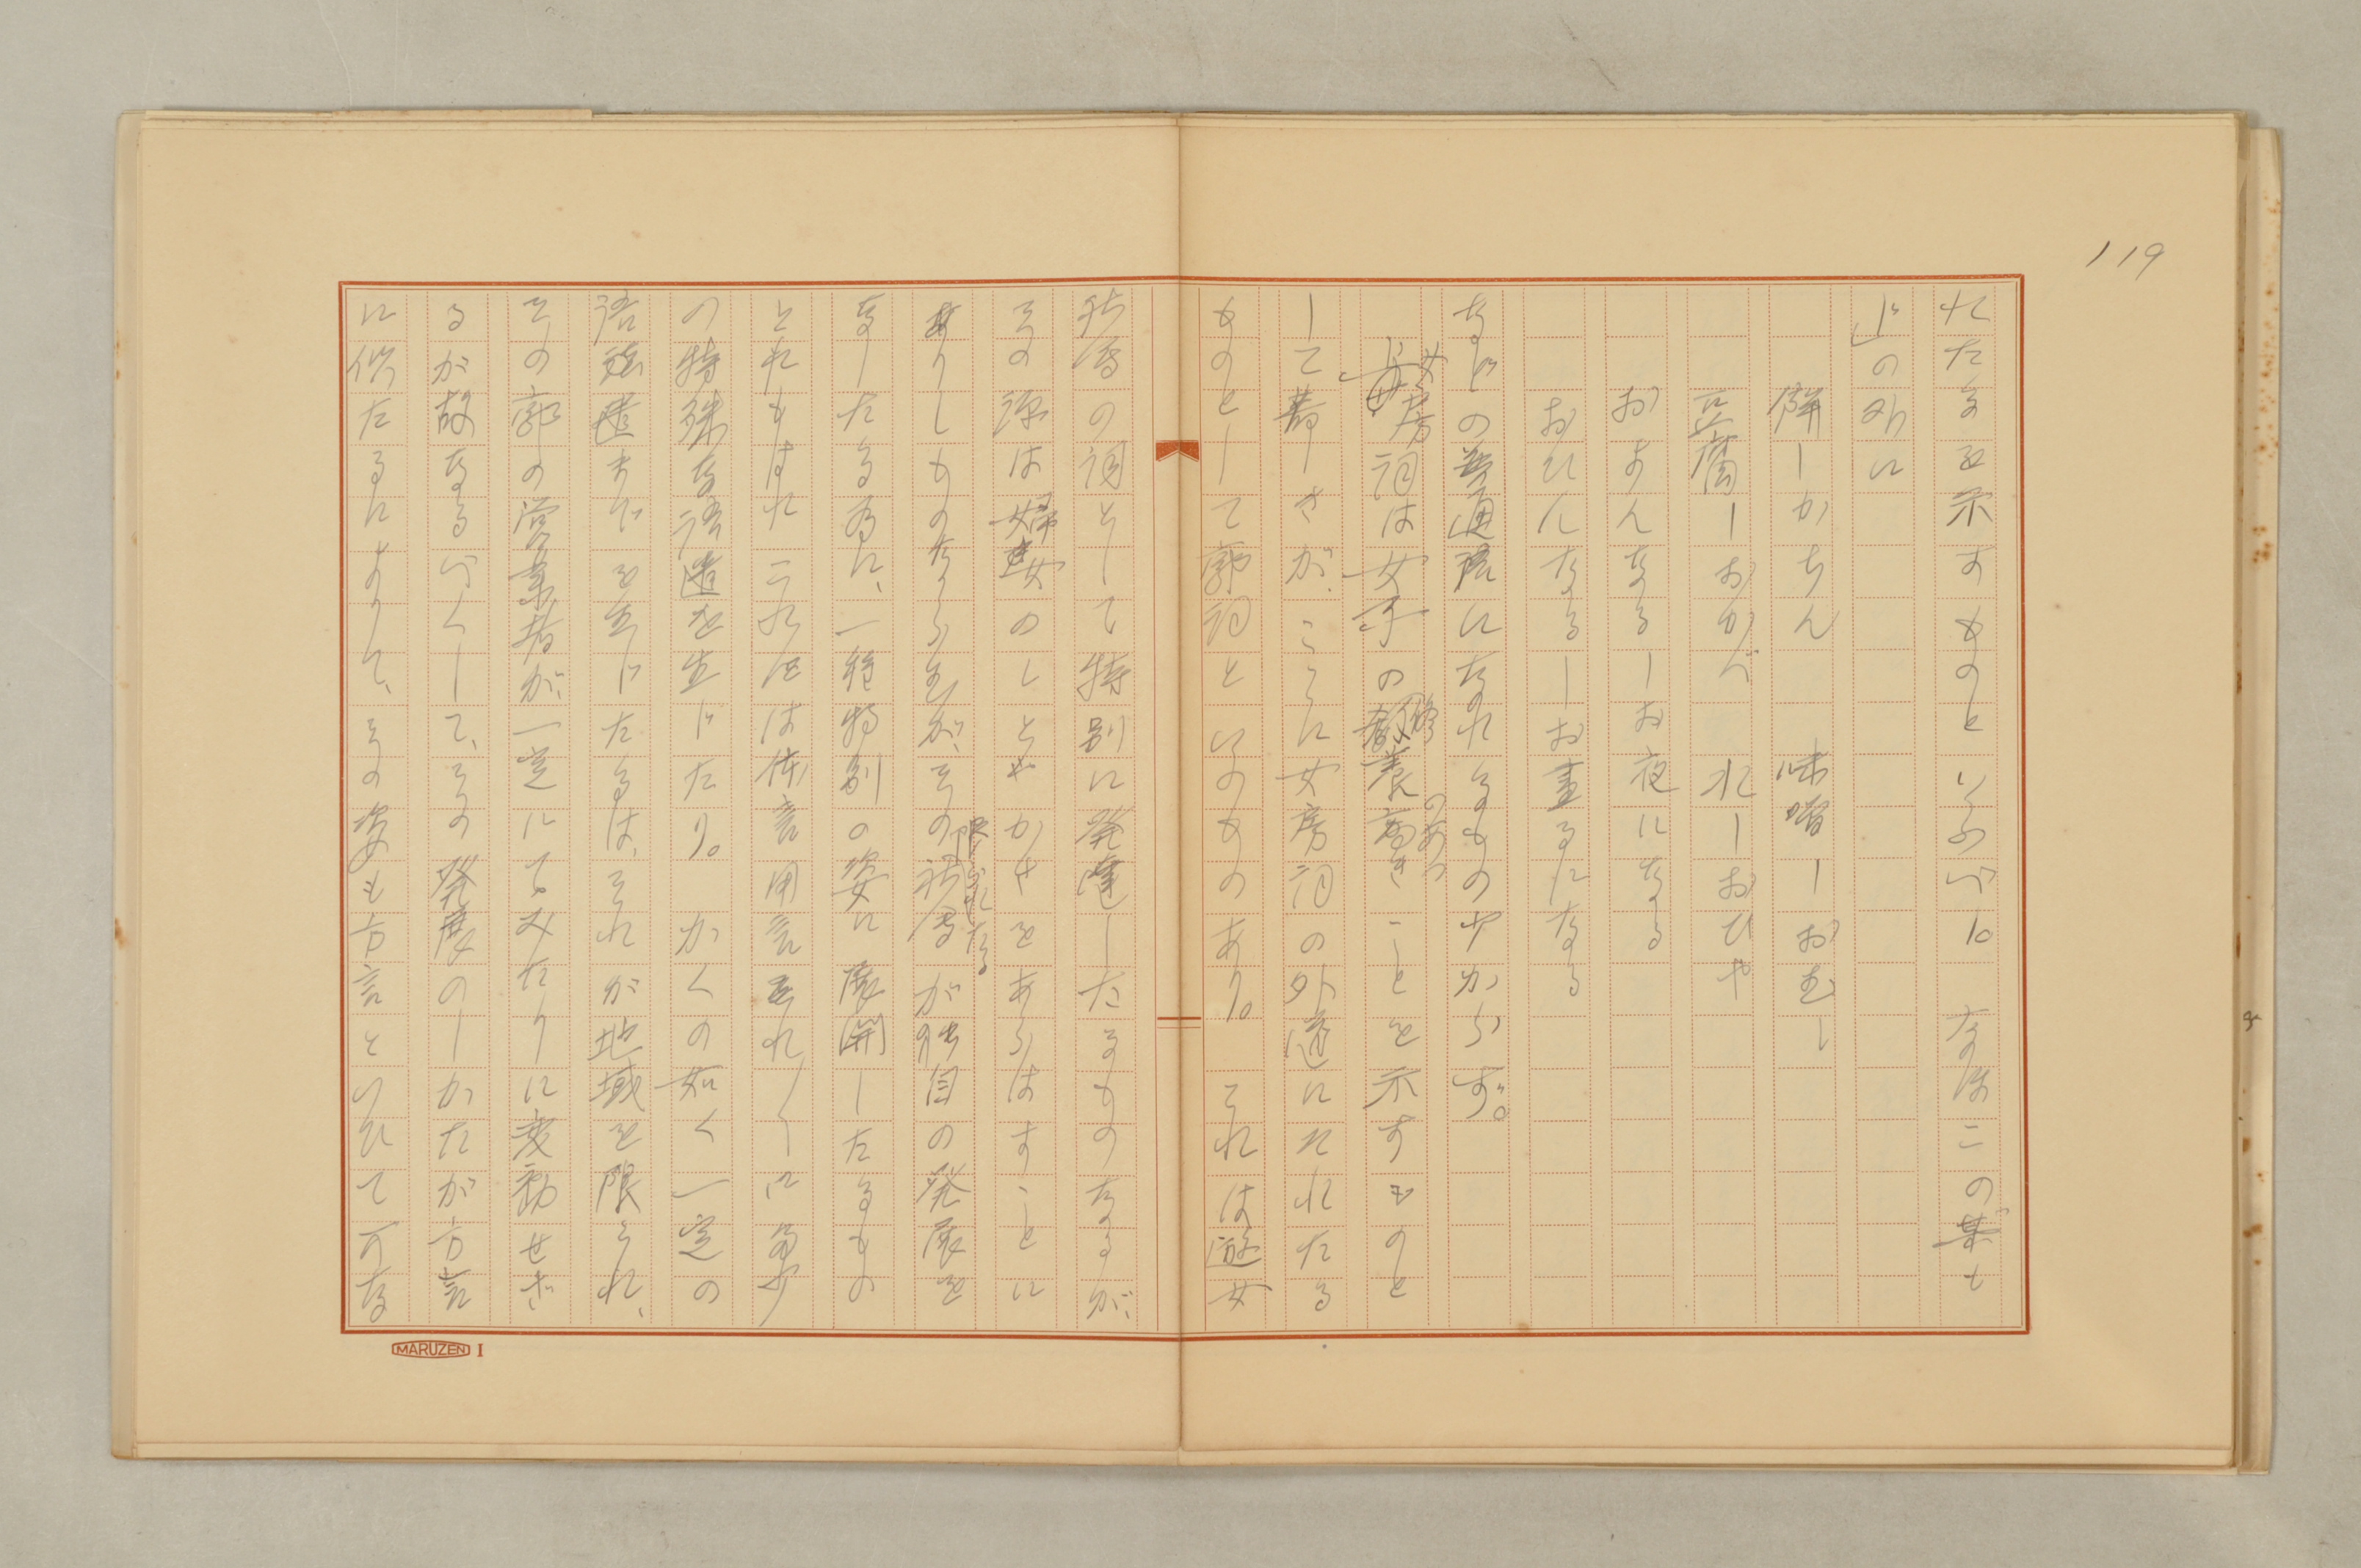 119
れたるを示すものといふべし。なほこの某も
」の外に
餅ーかちん　味噌ーおむし
豆腐ーおかべ　水ーおひや
おあんなるーお夜になる
おひんなるーお昼るになる
などの普通語になれるもの少からず。
女房詞は女子の修養のあつ高きことを示すものと
して著しきが、ここに女房詞の外道にそれたる
ものとして郭詞といふものあり。これは遊女
社会の詞として特別に発達したるものなるが、
その源は婦女のしとやかさをあらはすことに
ありしものならむが、その限られたる社会が独自の発展を
なしたる為に、一種特別の姿に展開したるもの
とおもはれ　この語は体言用言それ〳〵に多少
の特殊な語遣を生じたり。かくの如く一定の
語遣までを生じたるは、それが地域を限られ、
その郭の営業者が、一定にてみだりに変動せざ
るが故なるべくして、その発展のしかたが方言
に似たるにありて、その姿も方言といひて可な
MARUZEN I